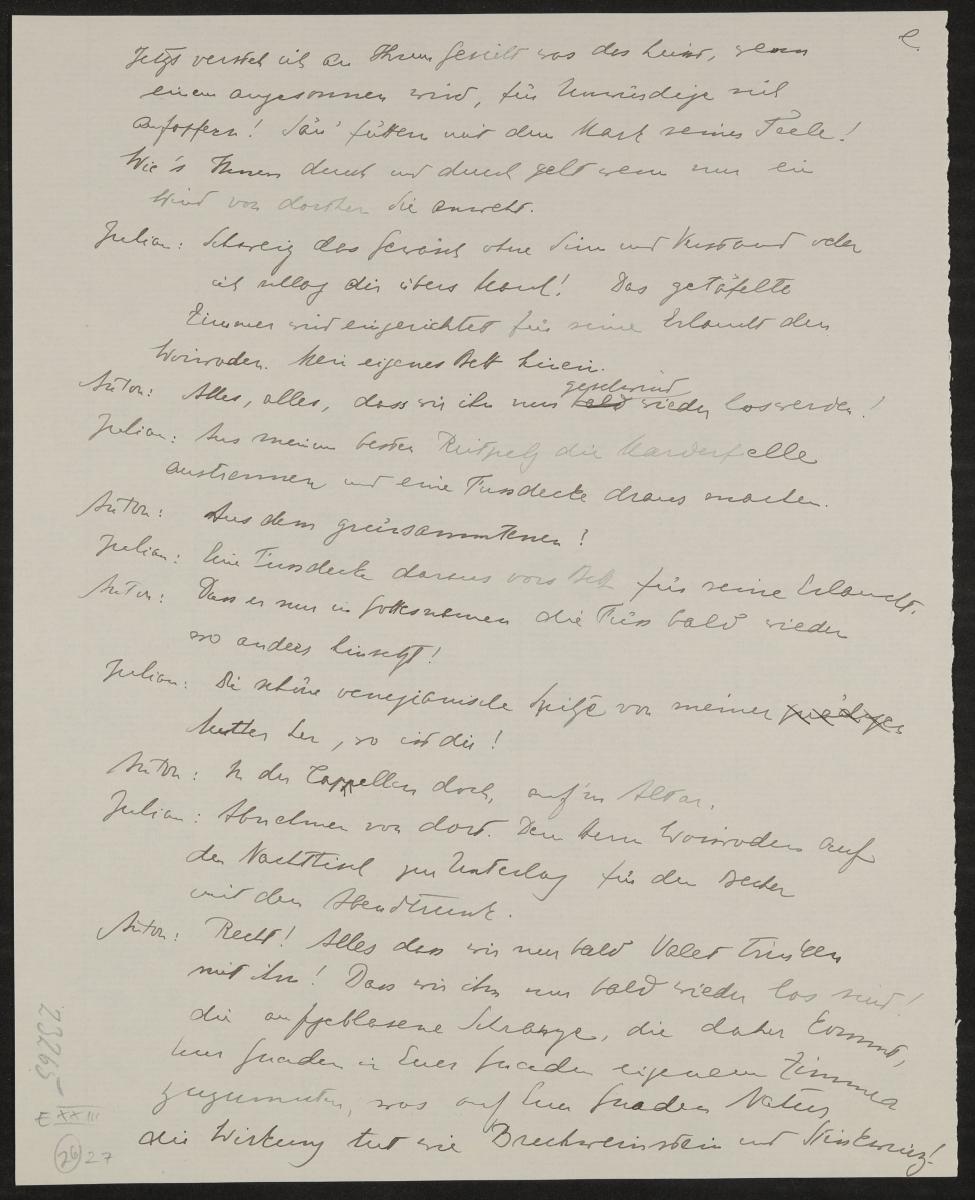 e.
Jetzt versteh ich an Ihrem Gesicht was das heisst, wenn
einem angesonnen wird, für Unwürdige sich
aufopfern! Säu' füttern mit dem Mark seiner Seele!
Wie's Ihnen durch und durch geht wenn nur ein
Wind von dorther Sie anweht.
Julian: Schweig das Gewäsch ohne Sinn und Verstand oder
ich schlag dir übers Maul! Das getäfelte
Zimmer wird eingerichtet für seine Erlaucht den
Woiwoden. Mein eigenes Bett hinein.
geschwind
Anton: Alles, alles, dass wir ihn nur bald wieder loswerden!
Julian: Aus meinem besten Reitpelz die Marderfelle
austrennen und eine Fussdecke draus machen.
Anton: Aus dem grünsammtenen!
Julian: Eine Fussdecke daraus vors Bett für seine Erlaucht.
Anton: Dass er nur in Gottesnamen die Füss bald wieder
wo anders hinsetzt!
Julian: Die schöne venezianische Spitze von meiner
Mutter her, wo ist die!
Anton: In der Cappellen doch, auf'm Altar.
Julian: Abnehmen von dort. Dem Herrn Woiwoden auf
den Nachttisch zur Unterlag für den Becher
mit dem Abendtrunk.
Anton: Recht! Alles dass wir nur bald Valet trinken
mit ihm! Dass wir ihn nur bald wieder los sind!
die aufgeblasene Schranze, die daher kommt,
Euer Gnaden in Euer Gnaden eigenem Zimmer
zuzumuten, was auf Euer Gnaden Natur
die Wirkung tut wie Brechweinstein und Nieswurz!
23265
E XXIII
26 27